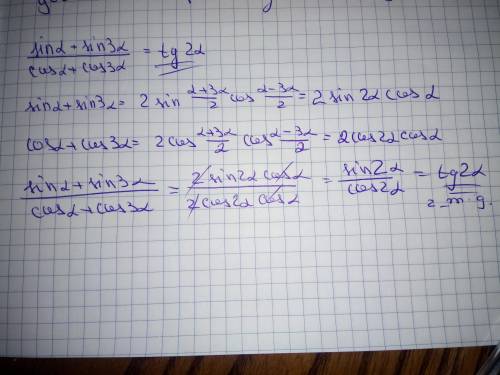 sinα + sin3α / cosα + cos3α = tg2α
sinα + sin3α = 2 sin α+3α/2 cos α-3α/2 = 2 sin 2α cos α
cosα + cos3α = 2 cos α+3α/2 cos α-3α/2 = 2 cos2α cosα
sinα + sin3α / cosα + cos3α = 2 sin2α cosα / 2 cos2α cosα = sin2α / cos2α = tg2α